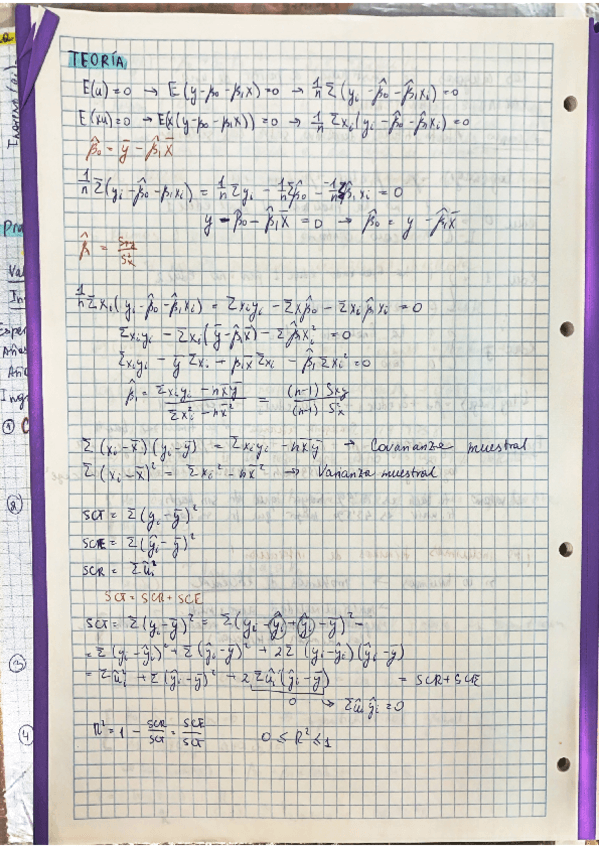 TEORÍA
E(u)=0 → E(y-β0-β1x)=0 → 1/n Σ(yi-β̂0-β̂1xi)=0
E(xu)=0 → E(x(y-β0-β1x))=0 → 1/n Σxi(yi-β̂0-β̂1xi)=0
β̂0 = ȳ - β̂1x̄
1/n Σ(yi-β̂0-β1xi) = 1/n Σyi - 1/n Σβ̂0 - 1/n Σβ̂1xi = 0
y - β̂0 - β̂1x̄ = 0 → β̂0 = y - β̂1x̄
β̂ = Sxy/S²x
1/n Σxi(yi-β̂0-β̂1xi) = Σxiyi - Σxβ̂0 - Σxiβ̂1xi = 0
Σxiyi - Σxi(ȳ-β̂1x̄) - Σβ̂1xi² = 0
Σxiyi - ȳΣxi + β1x̄Σxi - β̂1Σxi² = 0
β̂1 = (Σxiyi - nx̄ȳ)/(Σxi² - nx̄²) = ((n-1) Sxy)/((n-1) S²x)
Σ(xi-x̄)(yi-ȳ) = Σxiyi - nx̄ȳ → Covarianza muestral
Σ(xi-x̄)² = Σxi² - nx̄² → Varianza muestral
SCT = Σ(yi-ȳ)²
SCE = Σ(ŷi-ȳ)²
SCR = Σûi²
SCT = SCR + SCE
SCT = Σ(yi-ȳ)² = Σ(yi-ŷi+ŷi-ȳ)² =
= Σ(yi-ŷi)² + Σ(ŷi-ȳ)² + 2Σ(yi-ŷi)(ŷi-ȳ)
= Σûi² + Σ(ŷi-ȳ)² + 2Σûi(ŷi-ȳ) = SCR+SCE
0 → Σûiŷi=0
R² = 1 - SCR/SCT = SCE/SCT 0 ≤ R² ≤ 1
2
3
4